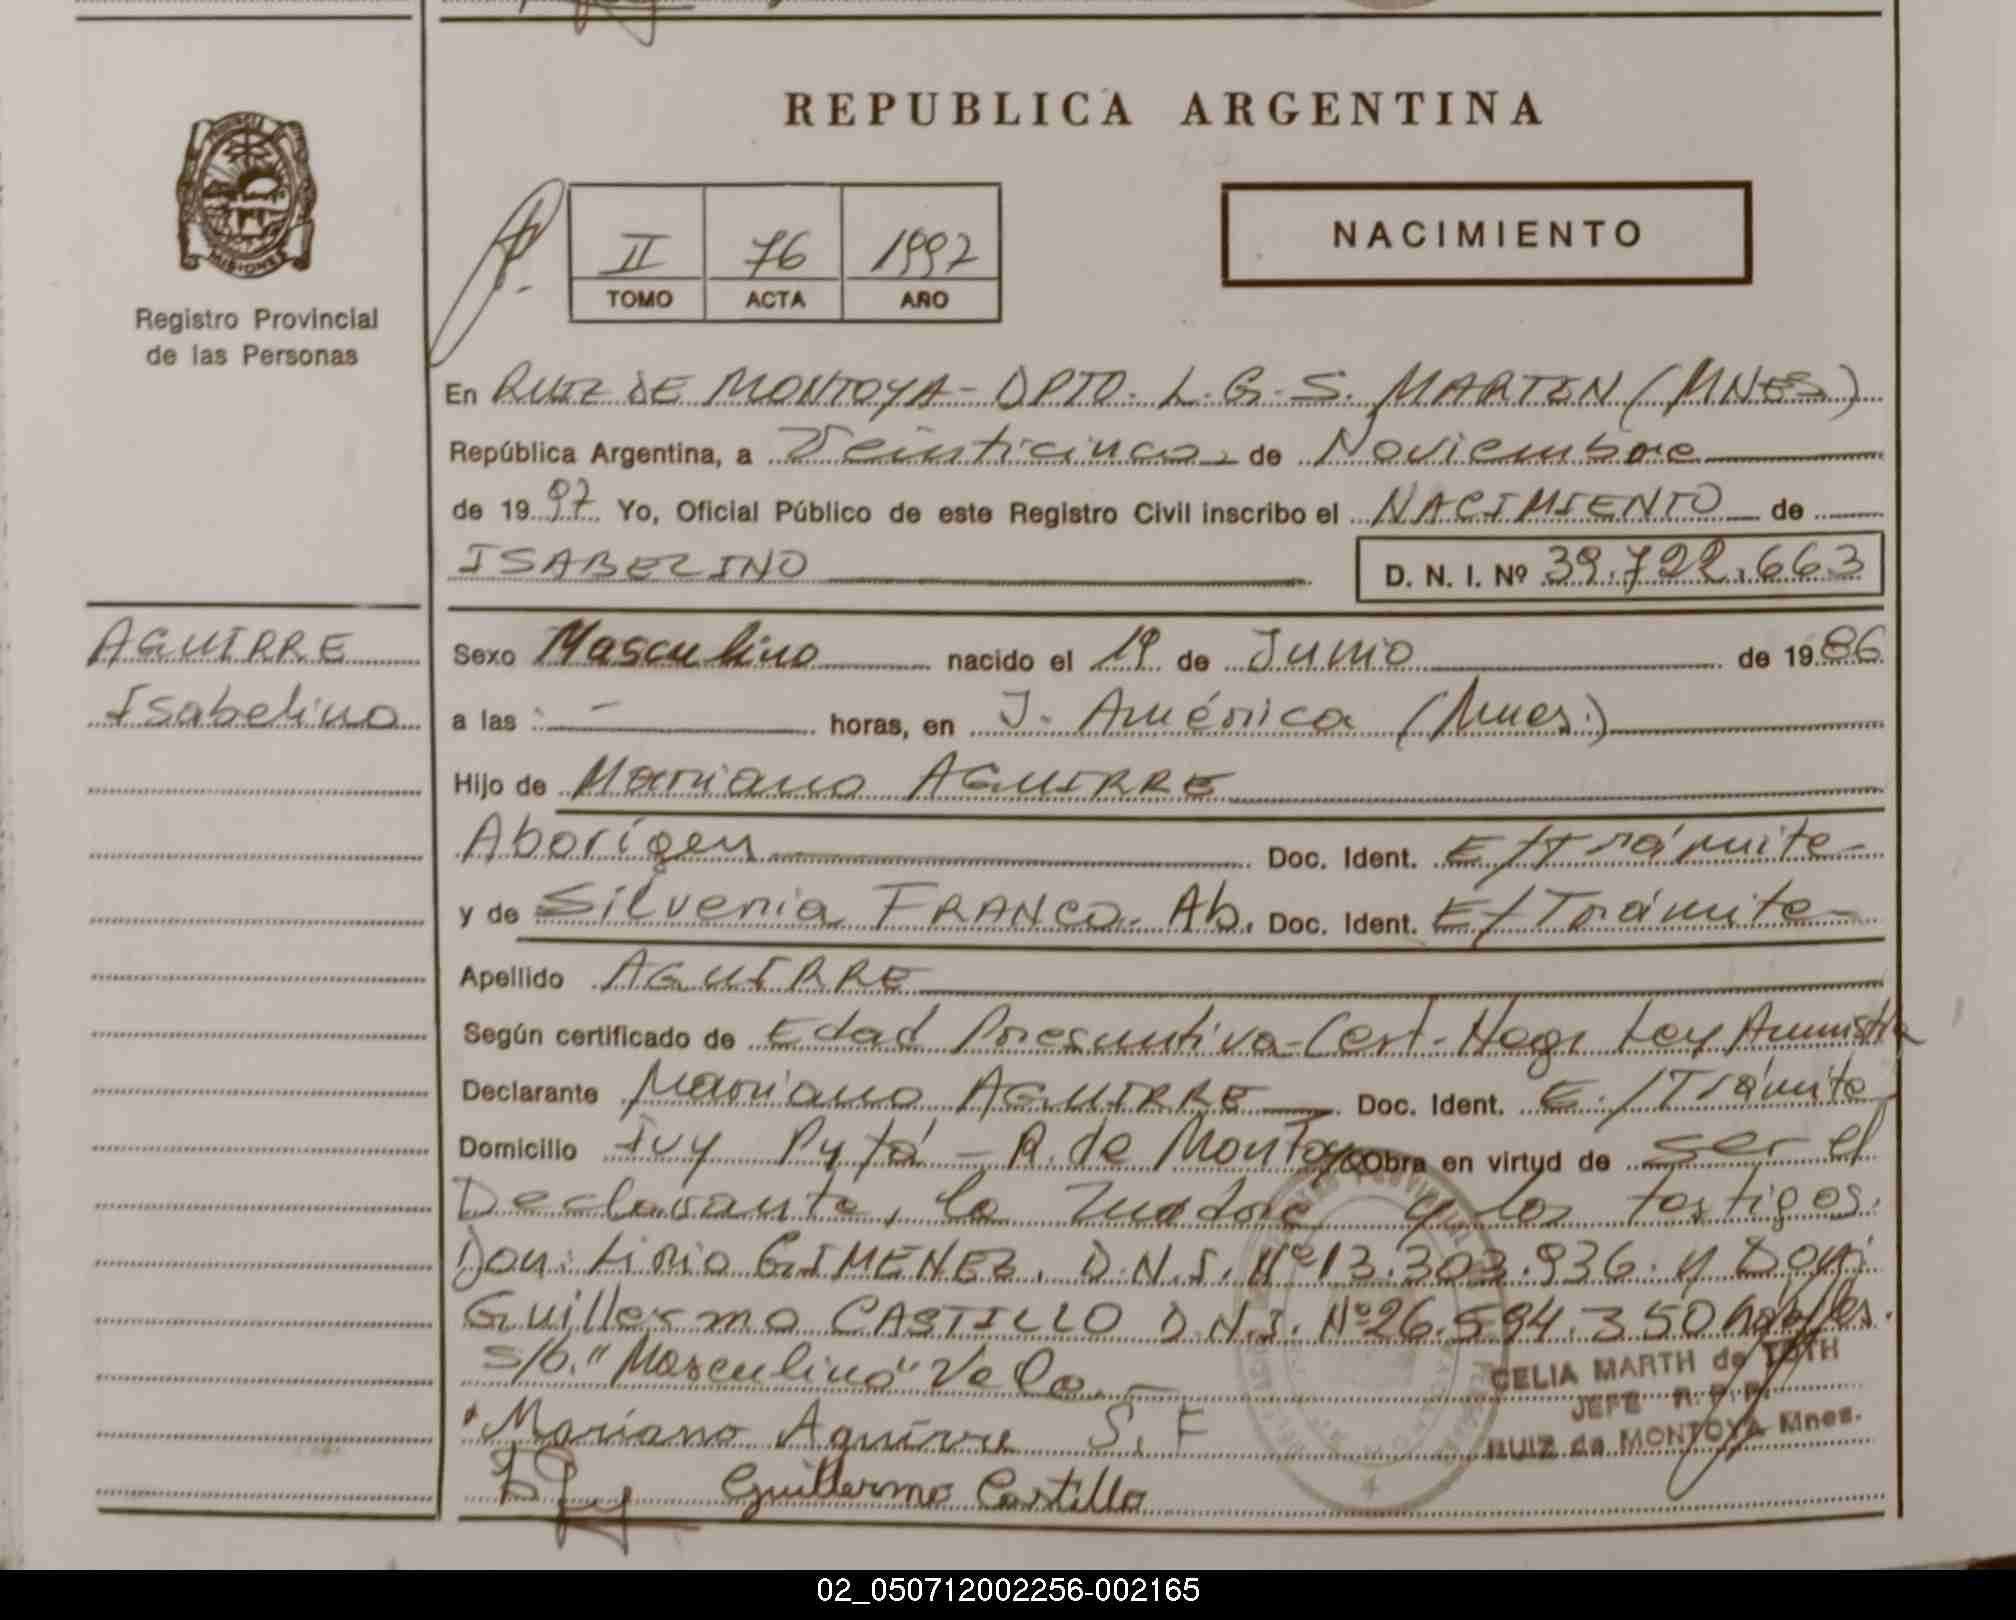 REPUBLICA ARGENTINA
MISIONES
Registro Provincial
de las Personas
II 76 1997
TOMO ACTA AÑO
NACIMIENTO
En RUIZ DE MONTOYA - DPTO. L. G. S. MARTIN (MNES)
República Argentina, a Veinticinco de Noviembre
de 1997 Yo, Oficial Público de este Registro Civil inscribo el NACIMIENTO de
ISABELINO D. N. I. Nº 39.722.663
AGUIRRE
Isabelino
Sexo Masculino nacido el 19 de Junio de 1986
a las - horas, en J. América (Mnes.)
Hijo de Mariano AGUIRRE
Aborigen Doc. Ident. E/Trámite
y de Silveria FRANCO. Ab. Doc. Ident. E/Trámite
Apellido AGUIRRE
Según certificado de Edad Presuntiva - Cert. Neg. Ley Amnistía
Declarante Mariano AGUIRRE Doc. Ident. E./Trámite
Domicilio Ivy Pytá - R. de Montoya Obra en virtud de ser el
Declarante, la madre y los testigos.
Don: Lirio GIMENEZ. D.N.I. Nº 13.303.936. y Don:
Guillermo CASTILLO D.N.I. Nº 26.594.350 hábiles.
s/b. "Masculino" Vale. -
Mariano Aguirre S. F
Guillermo Castillo
CELIA MARTH de TOTH
JEFE R. P. P.
RUIZ de MONTOYA Mnes.
02_050712002256-002165